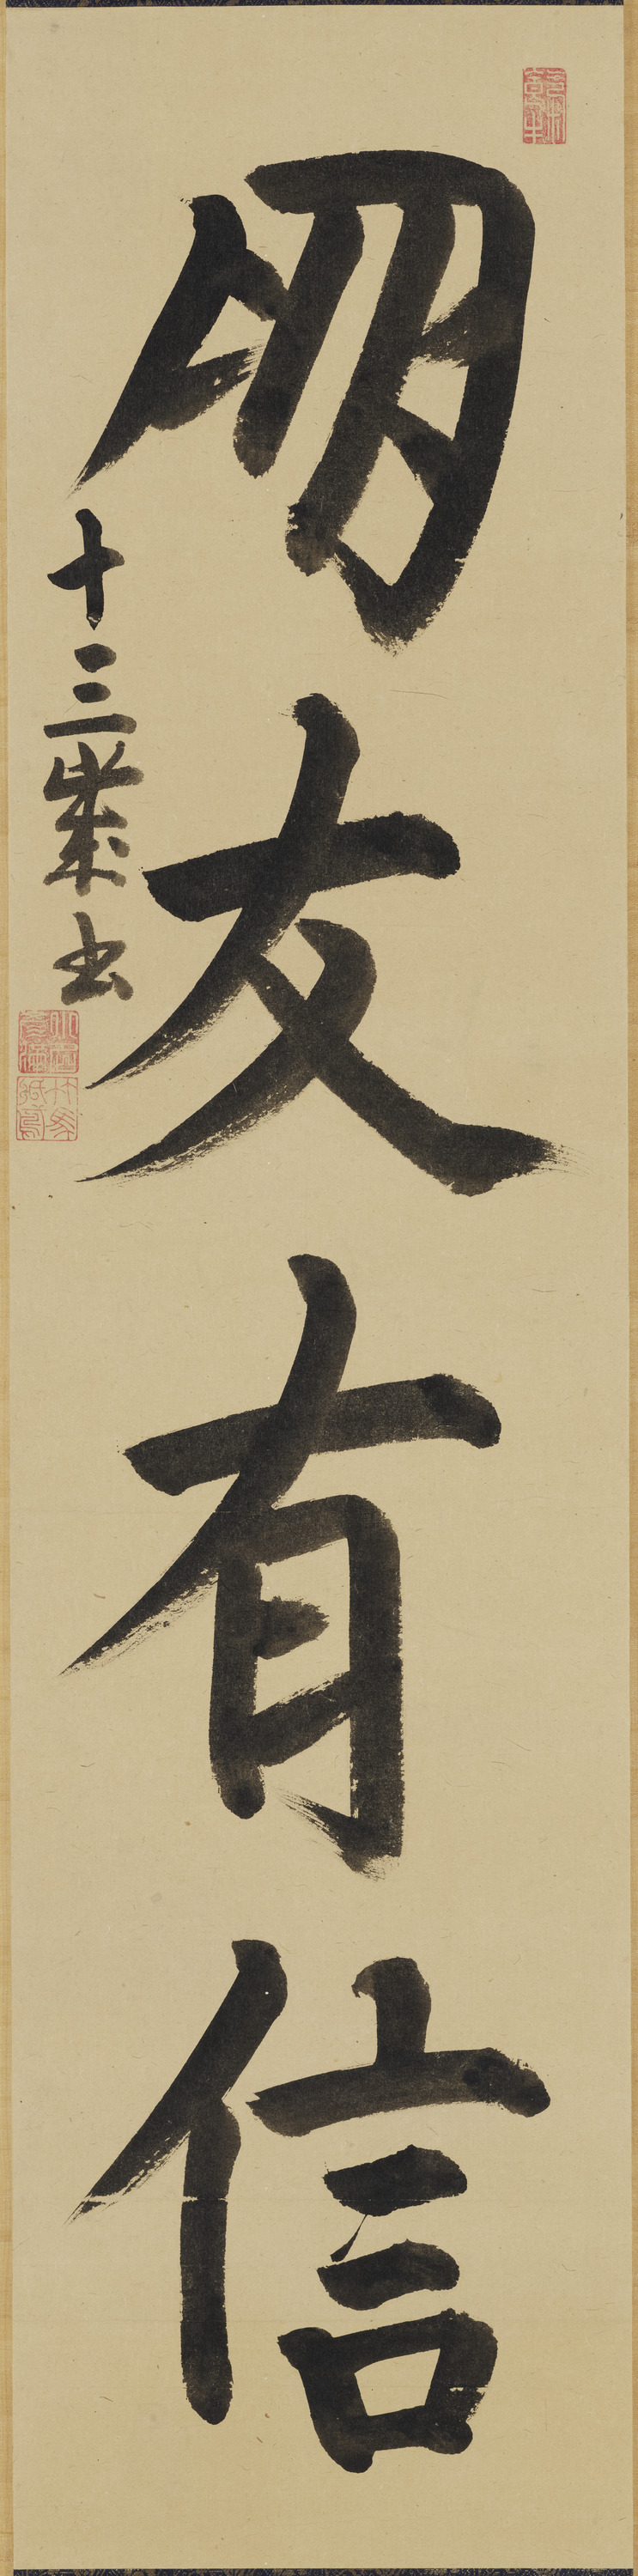 朋友有信
十三歲書